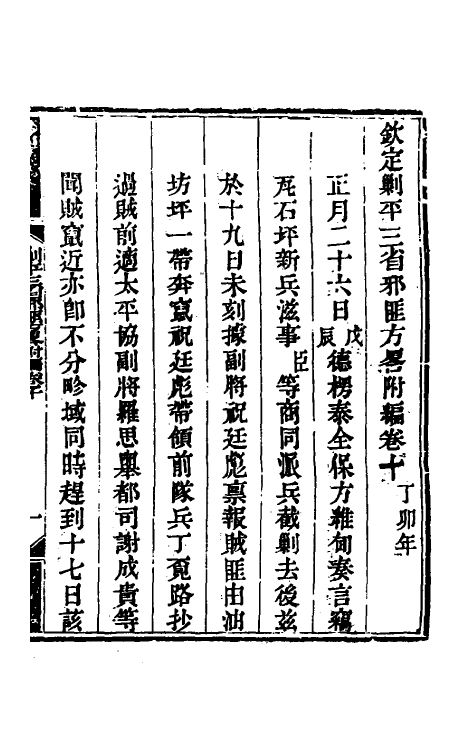 欽定剿平三省邪匪方畧附編卷十 丁卯年
正月二十六日戊辰德楞泰全保方維甸奏言竊
瓦石坪新兵滋事臣等商同派兵截剿去後茲
於十九日未刻據副將祝廷彪稟報賊匪由油
坊坪一帶奔竄祝廷彪帶領前隊兵丁覓路抄
過賊前適太平協副將羅思舉都司謝成貴等
聞賊竄近亦卽不分畛域同時趕到十七日該